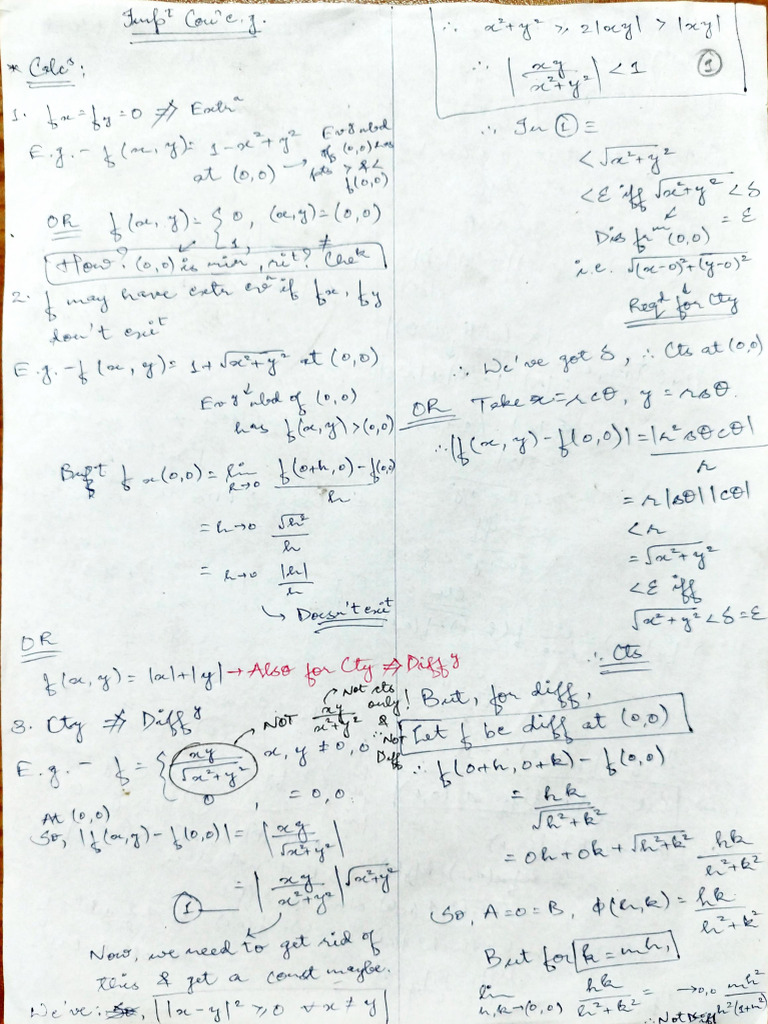 Imp^t Cou^r e.g.
* Calc^s:
1. f_x = f_y = 0 ⇏ Extr^m
E.g. - f(x, y) = 1 - x² + y²
at (0,0) → Ev^y nbd of (0,0) has pts > & < f(0,0)
OR f(x, y) = { 0, (x,y) = (0,0)
1, ≠
How? (0,0) is min, rit? Chek
2. f may have extr ev^n if f_x, f_y
don't exi^t
E.g. - f(x, y) = 1 + √x²+y² at (0,0)
Ev^y nbd of (0,0)
has f(x, y) > (0,0)
But f_x(0,0) = lim h→0 f(0+h, 0) - f(0,0) / h
= h→0 √h² / h
= h→0 |h| / h
↳ Doesn't exi^t
OR
f(x, y) = |x| + |y| → Also for Cty ⇏ Diff^y
3. Cty ⇏ Diff^y
→ NOT xy / x²+y² → Not cts only! & ∴ Not Diff
E.g. - f = { xy / √x²+y² x, y ≠ 0,0
0, = 0,0
At (0,0)
So, |f(x,y) - f(0,0)| = | xy / √x²+y² |
= | xy / x²+y² | √x²+y²
①
Now, we need to get rid of
this & get a const maybe.
We've: |x-y|² ≥ 0 ∀ x ≠ y
∴ x²+y² ≥ 2|xy| > |xy|
∴ | xy / x²+y² | < 1 ①
∴ In ① ≡
< √x²+y²
< ε iff √x²+y² < δ
= ε
Dis fr^m (0,0)
i.e. √(x-0)²+(y-0)²
Req^d for Cty
∴ We've got δ, ∴ Cts at (0,0)
OR Take x = rcθ, y = rsθ.
∴ |f(x, y) - f(0,0)| = |r² sθ cθ| / r
= r |sθ| |cθ|
< r
= √x²+y²
< ε iff
√x²+y² < δ = ε
∴ Cts
But, for diff,
Let f be diff at (0,0)
∴ f(0+h, 0+k) - f(0,0)
= hk / √h²+k²
= 0h + 0k + √h²+k² hk / h²+k²
So, A = 0 = B, ϕ(h,k) = hk / h²+k²
But for k = mh,
lim h,k→(0,0) hk / h²+k² = →0,0 mh² / h²(1+m²)
∴ Not Diff